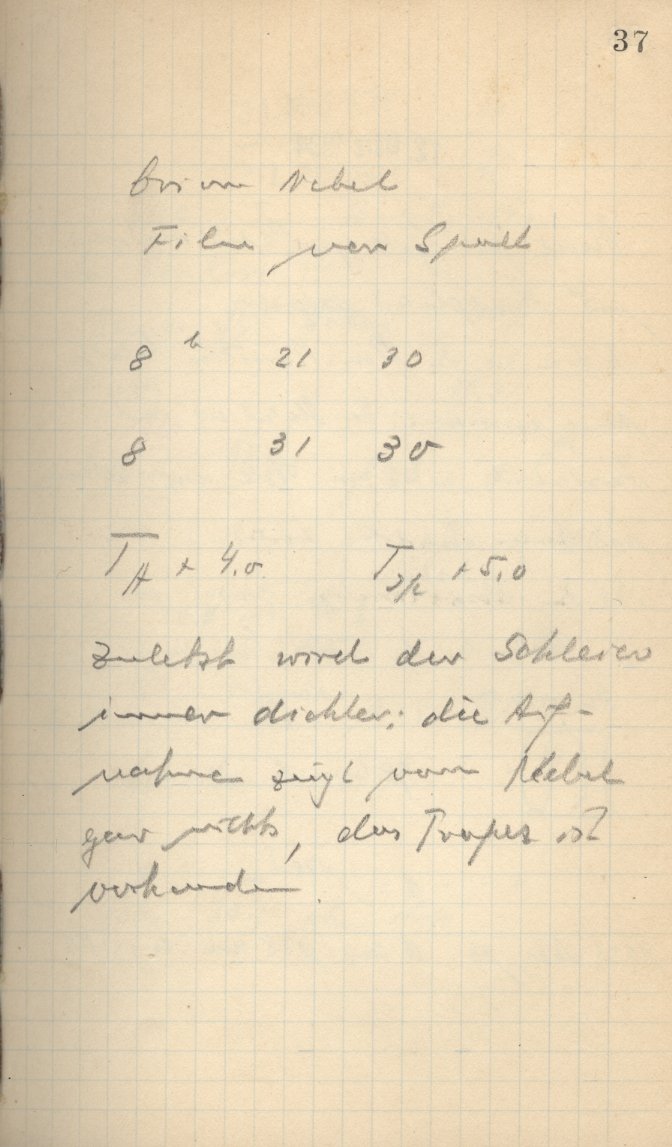 37
Orion Nebel
Film von Spalt
8 h 21 30
8 31 30
T A + 4.0 T Sp + 5,0
zuletzt wird der Schleier
immer dichter; die Auf-
nahme zeigt vom Nebel
gar nichts, das Trapez ist
vorhanden.